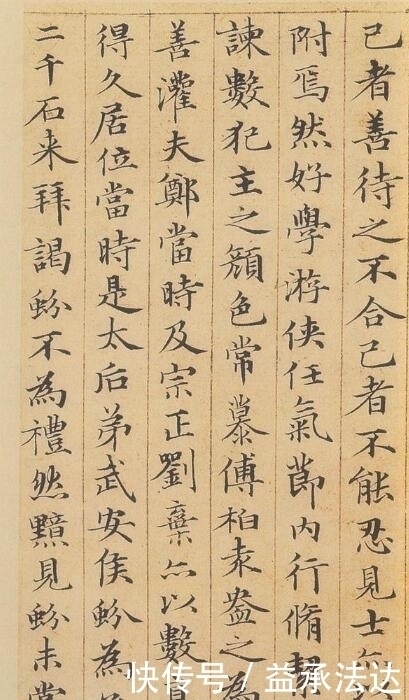 己者善待之不合己者不能忍見士
附焉然好學游俠任氣節内行脩
諫數犯主之顏色常慕傅柏袁盎之為
善灌夫鄭當時及宗正劉棄亦以數
得久居位當時是太后弟武安侯蚡為
二千石来拜謁蚡不為禮然黯見蚡未嘗
快传号 / 益承法达